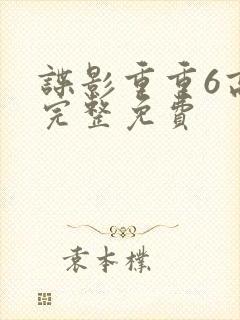 諜影重重6高
完整免費
袁本樸